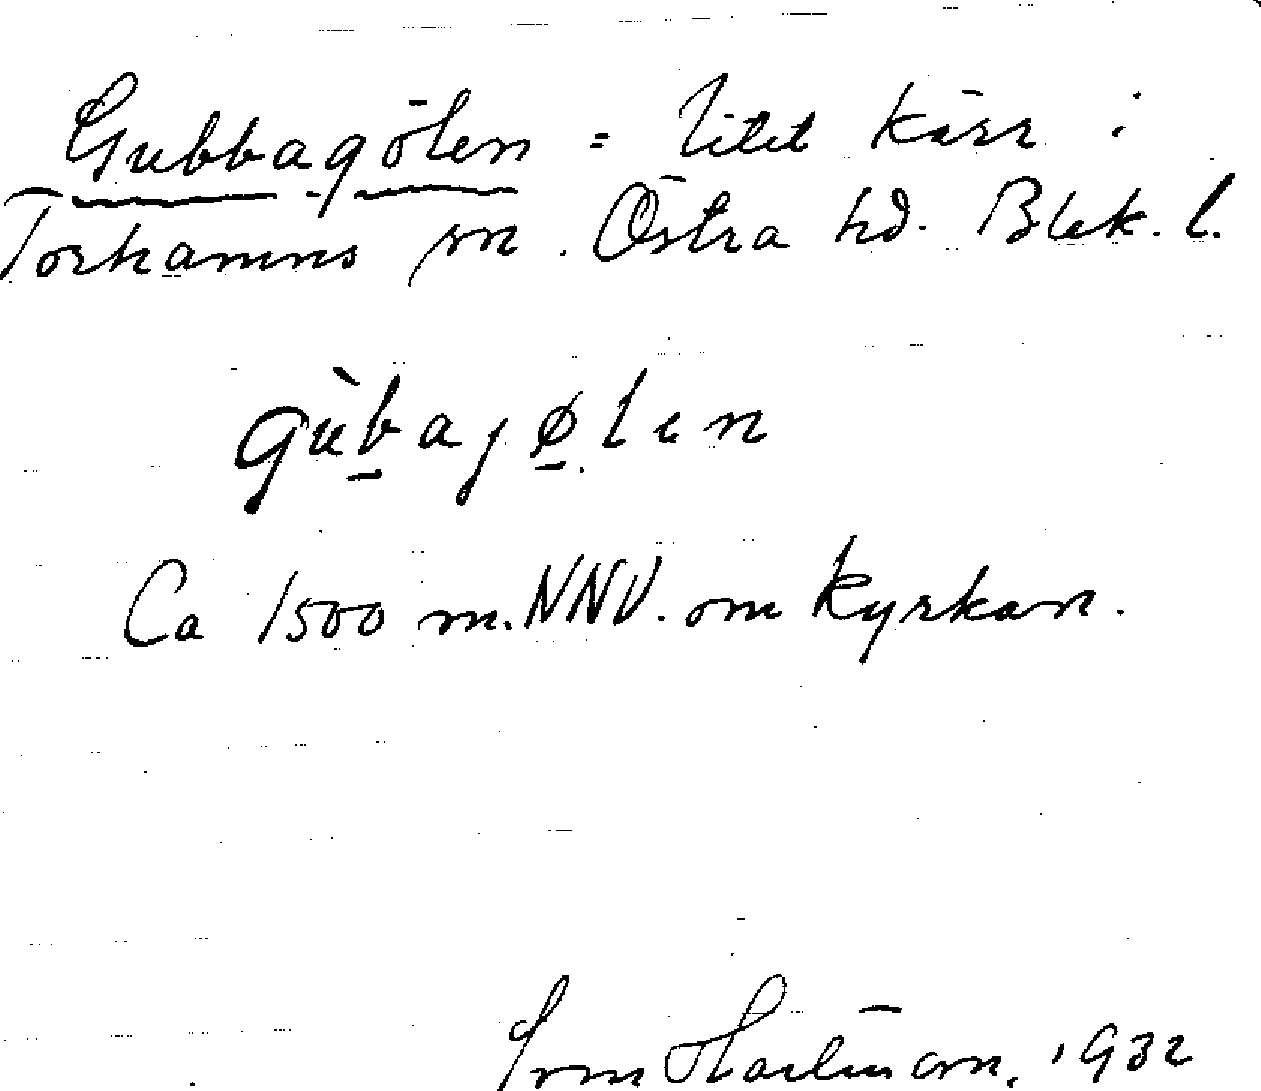 Gubbagölen = litet kärr i
Torhamns sn. Östra hd. Blek. l.
gùbajølen
Ca 1500 m. NNV. om kyrkan.
1932